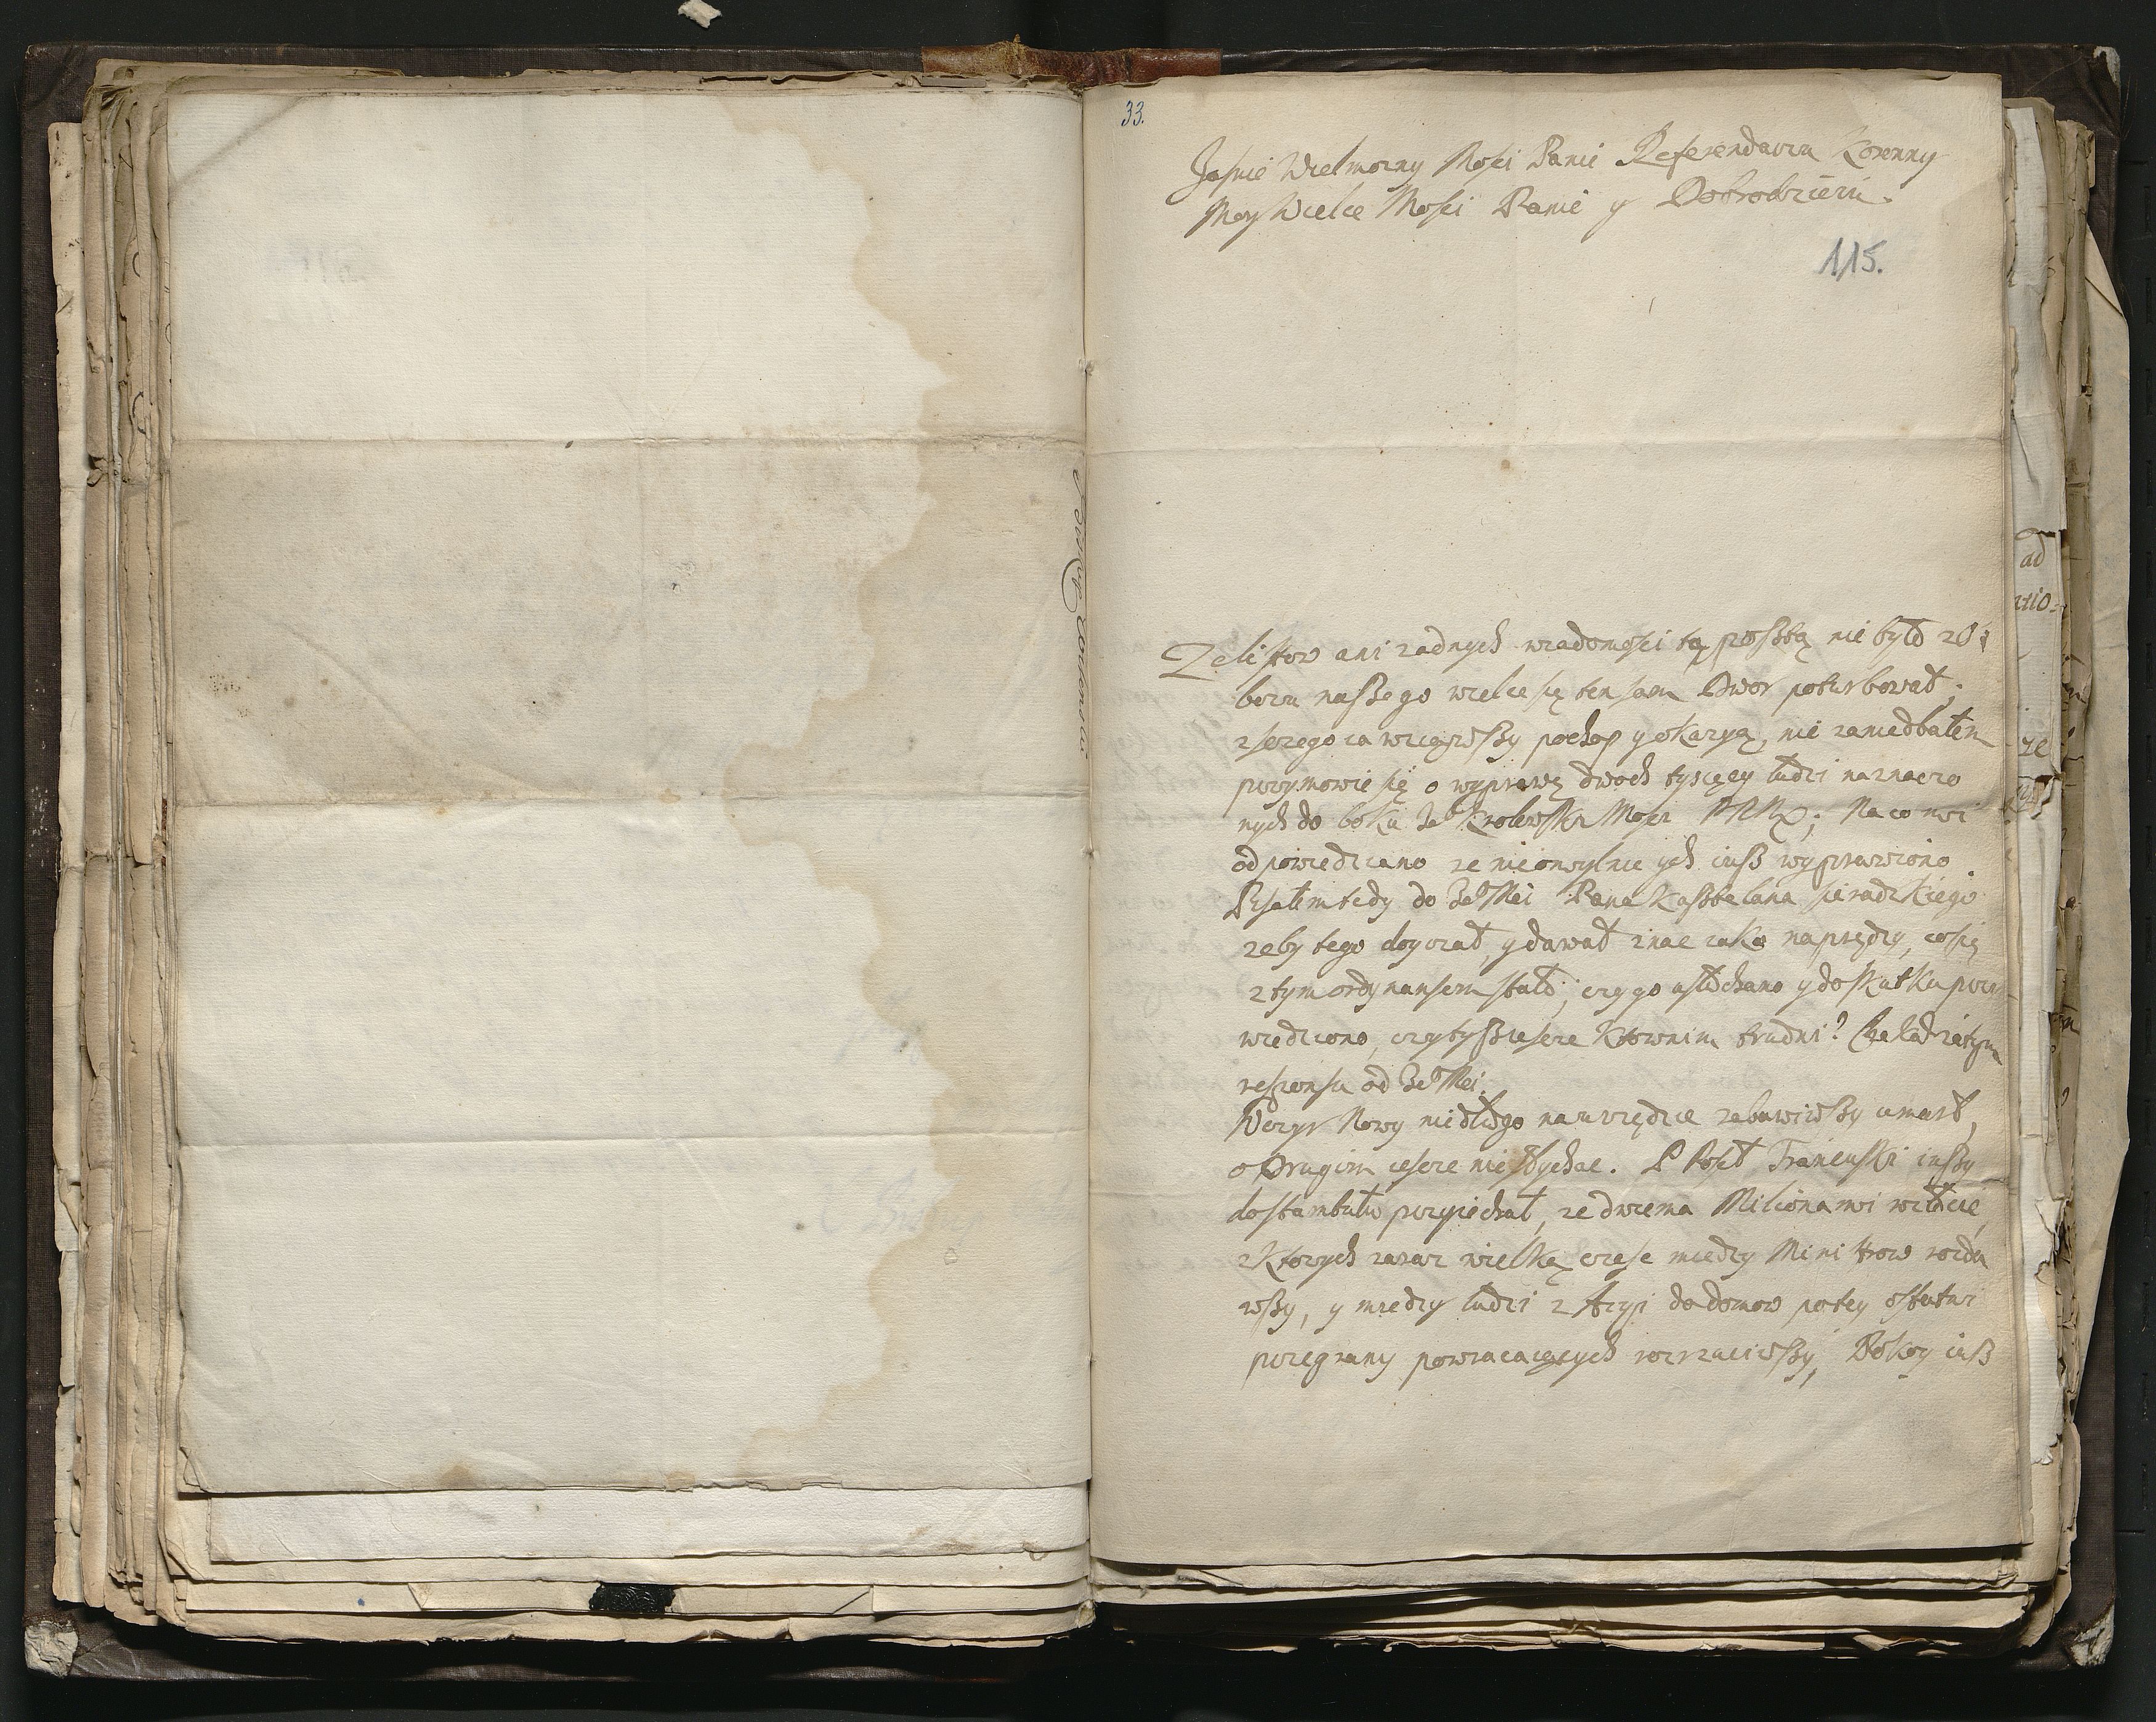 33.
Jasnie Wielmozny Mosci Panie Referendarzu Koronny
Moy Wielce Mosci Panie y Dobrodzieiu.
115.
Ze listow ani zadnych wiadomosci tą posztą nie było z O
bozu naszego wielce się ten sam Dwor poturbował;
z czego ia wziąwszy pochop y okazyą, nie zaniedbałem
przymowic się o wyprawę dwoch tysięcy ludzi naznaczo
nych do boku Je° Krolewski Mosci; Na co mi
odpowiedziano ze nieomylnie ych iusz wyprawiono
Pisałem tedy do Je° Mci Pana Kasztelana sieradzkiego
zeby tego doyzrał, y dawał znac iako naprędzy, co się
z tym ordynansem stało; czy go usłuchano y do skutku przy
wiedziono, czy tysz iescze kto w nim trudni? Czekac
responsu od Je° Mci.
Wezyr Nowy niedługo na urzędzie zabawiwszy umarł,
o Drugim iescze nie słychac. P Poseł Francuski iuszy
do stambułu przyiechał, ze dwiema Milionami
z ktorych zaraz wielką częsc miedzy Ministrow rozda
wszy, y miedzy ludzi z Azyi do domow po tey ostatni
przegrany powracaiących rozrzuciwszy, Pokoy iusz
ad
ntio=
ze